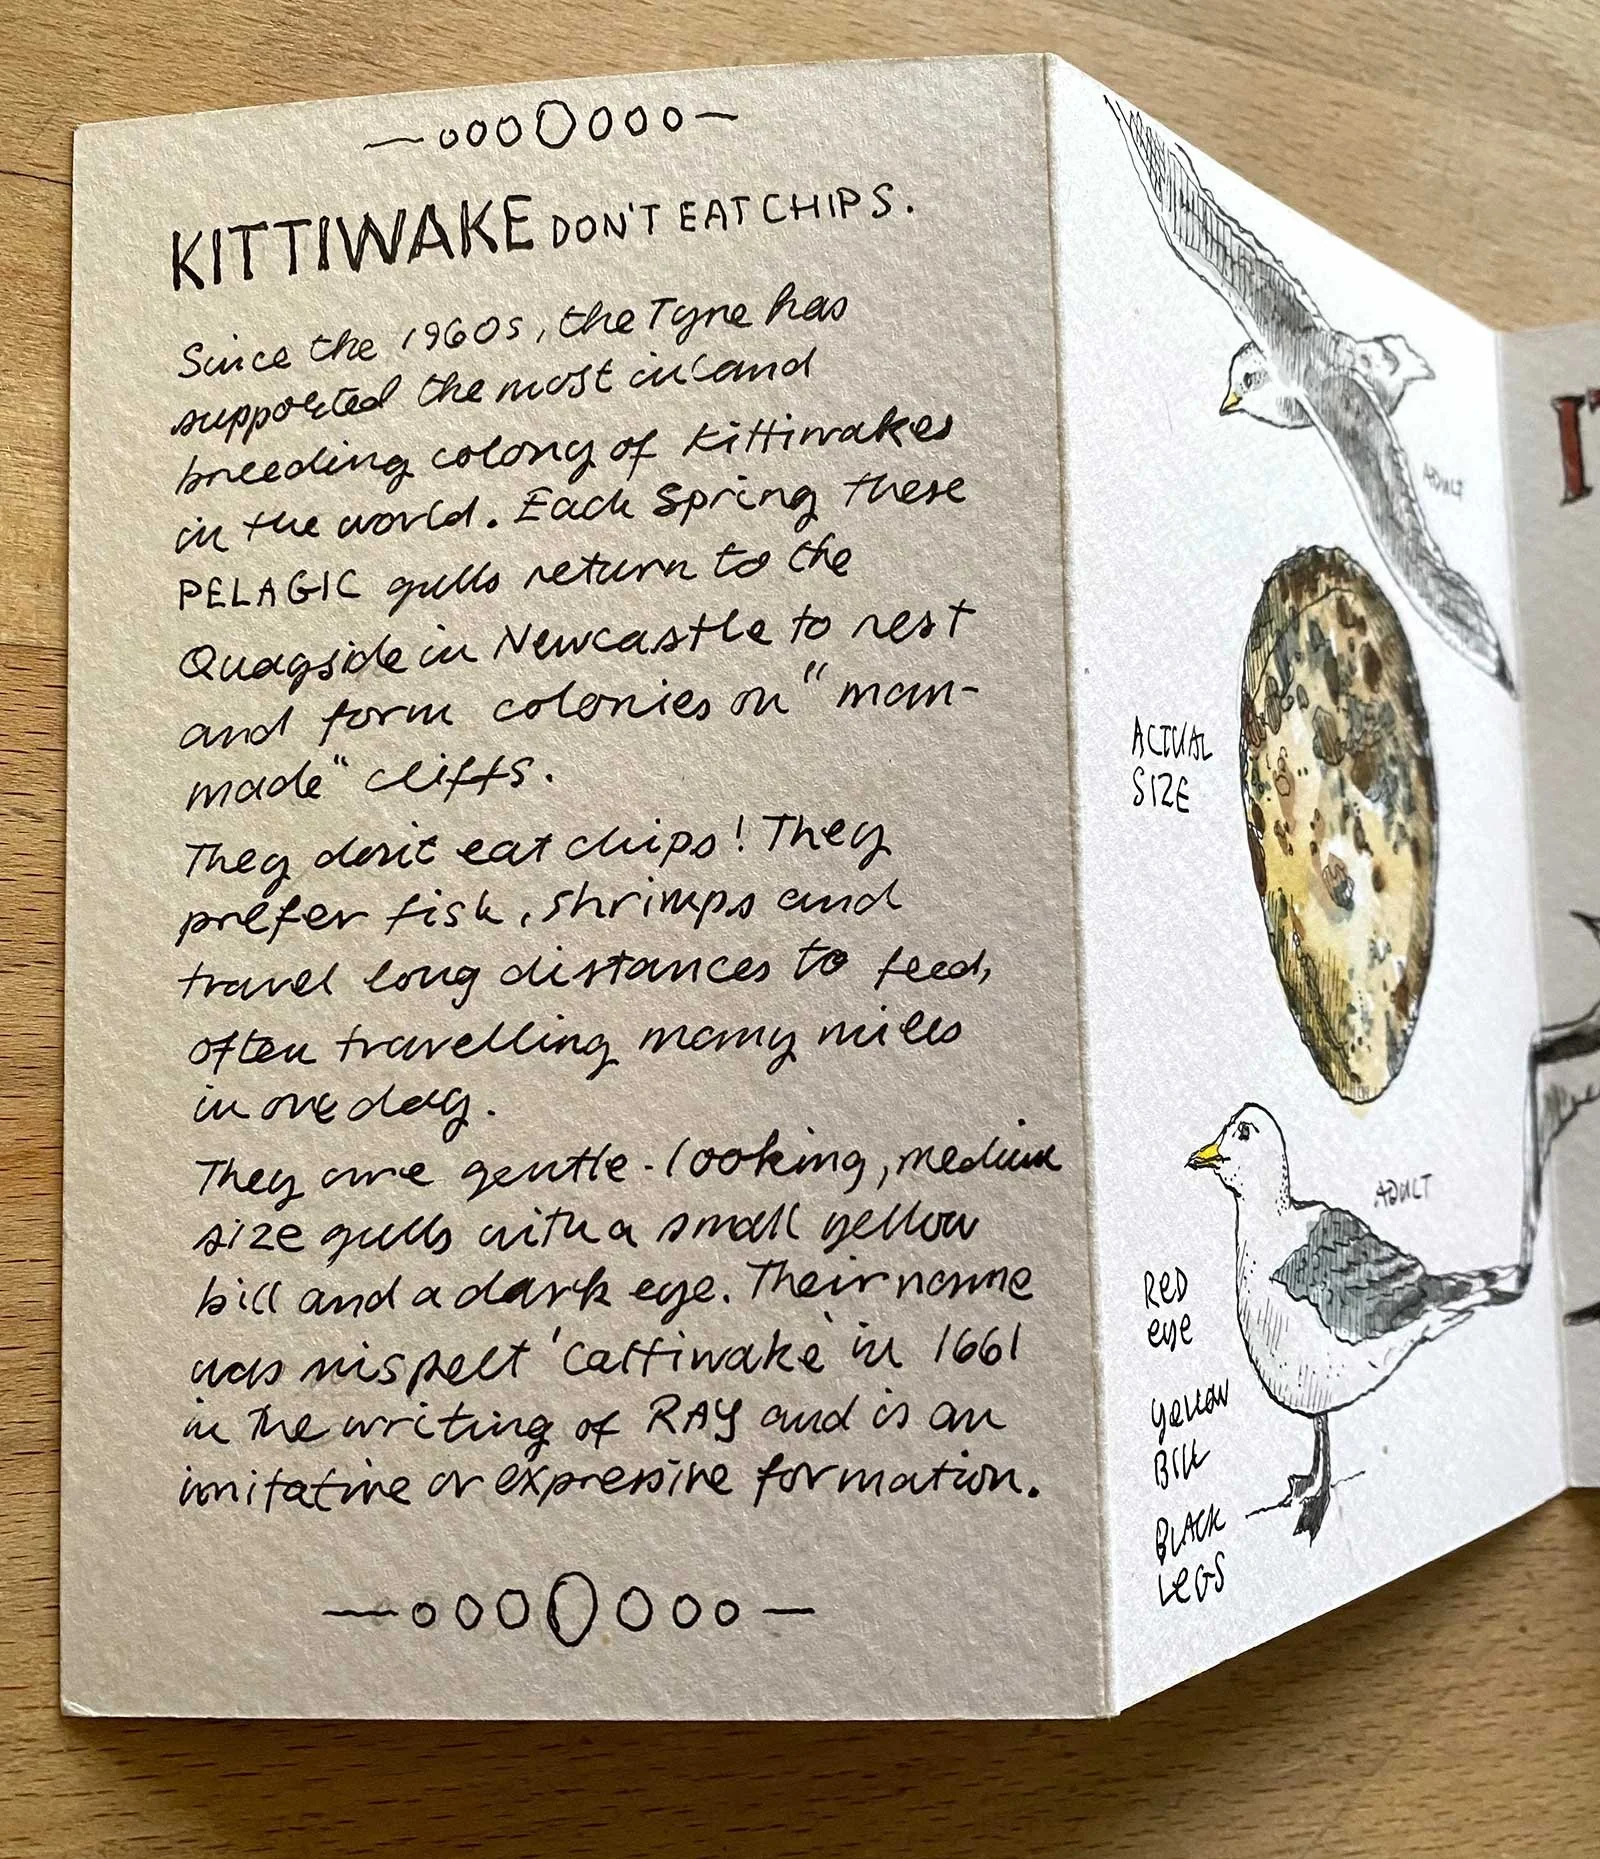 KITTIWAKE DON'T EAT CHIPS.
Since the 1960s, the Tyne has
supported the most inland
breeding colony of Kittiwakes
in the world. Each Spring these
PELAGIC gulls return to the
Quayside in Newcastle to rest
and form colonies on "man-
made" cliffs.
They don't eat chips! They
prefer fish, shrimps and
travel long distances to feed,
often travelling many miles
in one day.
They are gentle-looking, medium
size gulls with a small yellow
bill and a dark eye. Their name
was mispelt 'Cattiwake' in 1661
in the writing of RAY and is an
imitative or expressive formation.
ADULT
ACTUAL
SIZE
ADULT
RED
eye
yellow
Bill
BLACK
LeGS